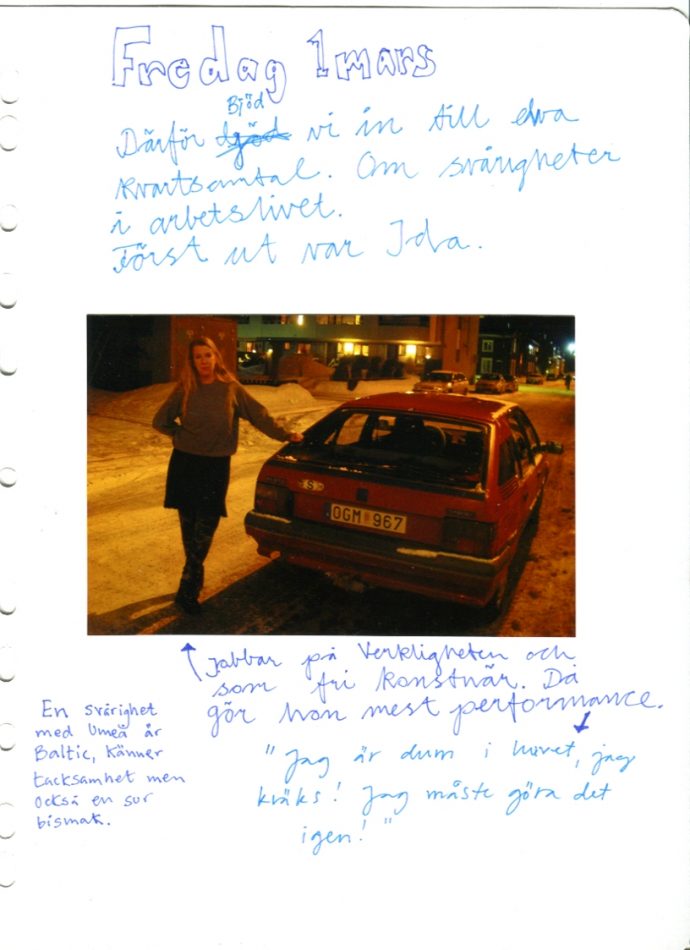 Fredag 1 mars
Bjöd
Därför bjöd vi in till elva
kvartsamtal. Om svårigheter
i arbetslivet.
Först ut var Ida.
S
OGM 967
Jobbar på Verkligheten och
som fri konstnär. Då
gör hon mest performance.
En svårighet
med Umeå är
Baltic, känner
tacksamhet men
också en sur
bismak.
"Jag är dum i huvet, jag
kräks! Jag måste göra det
igen!"